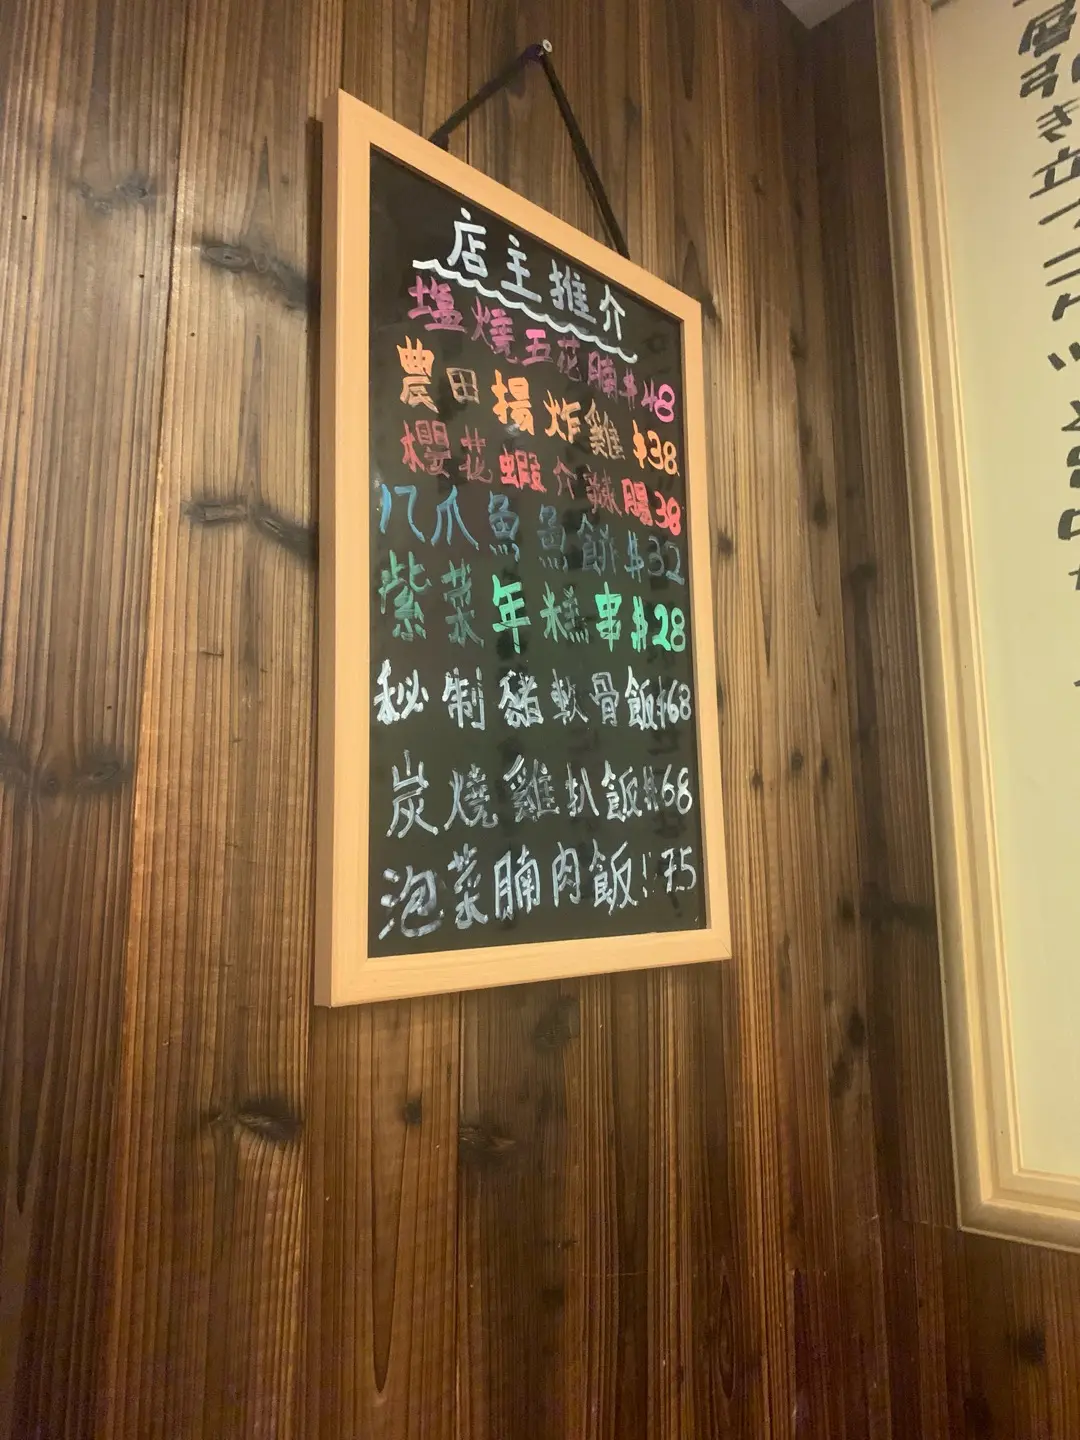 店主推介
塩燒五花腩$48
農田揚炸雞$38
櫻花蝦介辣腸38
八爪魚魚餅$32
紫菜年糕串$28
秘制豬軟骨飯$68
炭燒雞扒飯$68
泡菜腩肉飯! 75
引き立